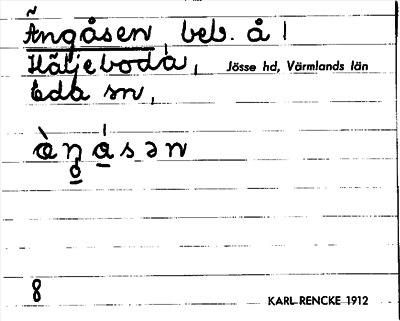 Ängåsen beb. å!
Häljeboda, Jösse hd, Värmlands län
Eda sn,
àŋåsən
8
KARL RENCKE 1912